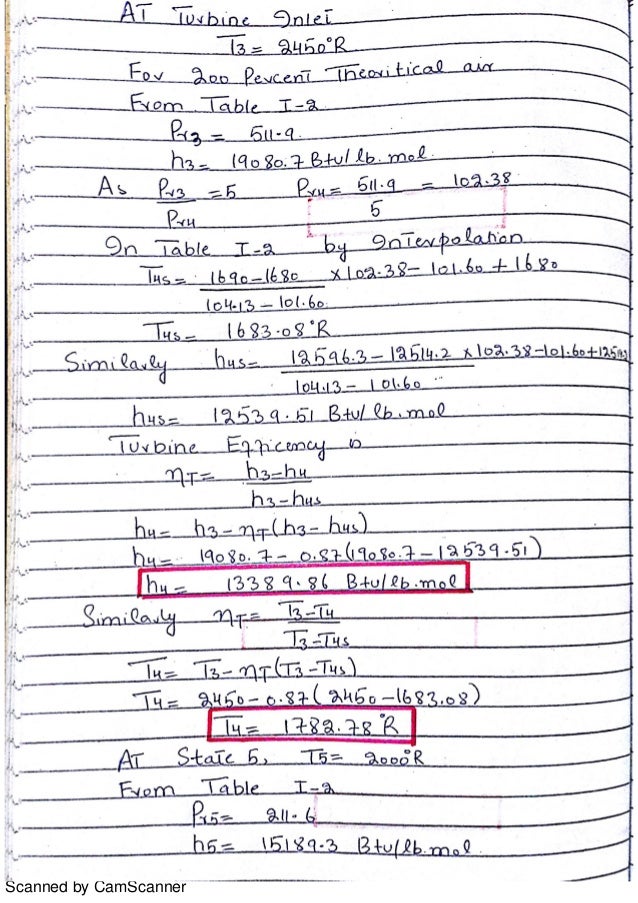 AT Turbine Inlet
T3 = 2450°R
For 200 Percent Theoritical air
From Table I-2
Pr3 = 511.9
h3 = 19080.7 Btu/lb.mol
As Pr3/Pr4 = 5 Pr4 = 511.9/5 = 102.38
In Table I-2 by Interpolation
T4s = 1690-1680/104.13-101.60 × 102.38-101.60 + 1680
T4s = 1683.08°R
Similarly h4s = 12596.3-12514.2/104.13-101.60 × 102.38-101.60+12514.2
h4s = 12539.51 Btu/lb.mol
Turbine Efficency is
ηT = h3-h4/h3-h4s
h4 = h3-ηT(h3-h4s)
h4 = 19080.7-0.87(19080.7-12539.51)
h4 = 13389.86 Btu/lb.mol
Similarly ηT = T3-T4/T3-T4s
T4 = T3-ηT(T3-T4s)
T4 = 2450-0.87(2450-1683.08)
T4 = 1782.78°R
AT State 5, T5 = 2000°R
From Table I-2
Pr5 = 211.6
h5 = 15189.3 Btu/lb.mol
Scanned by CamScanner